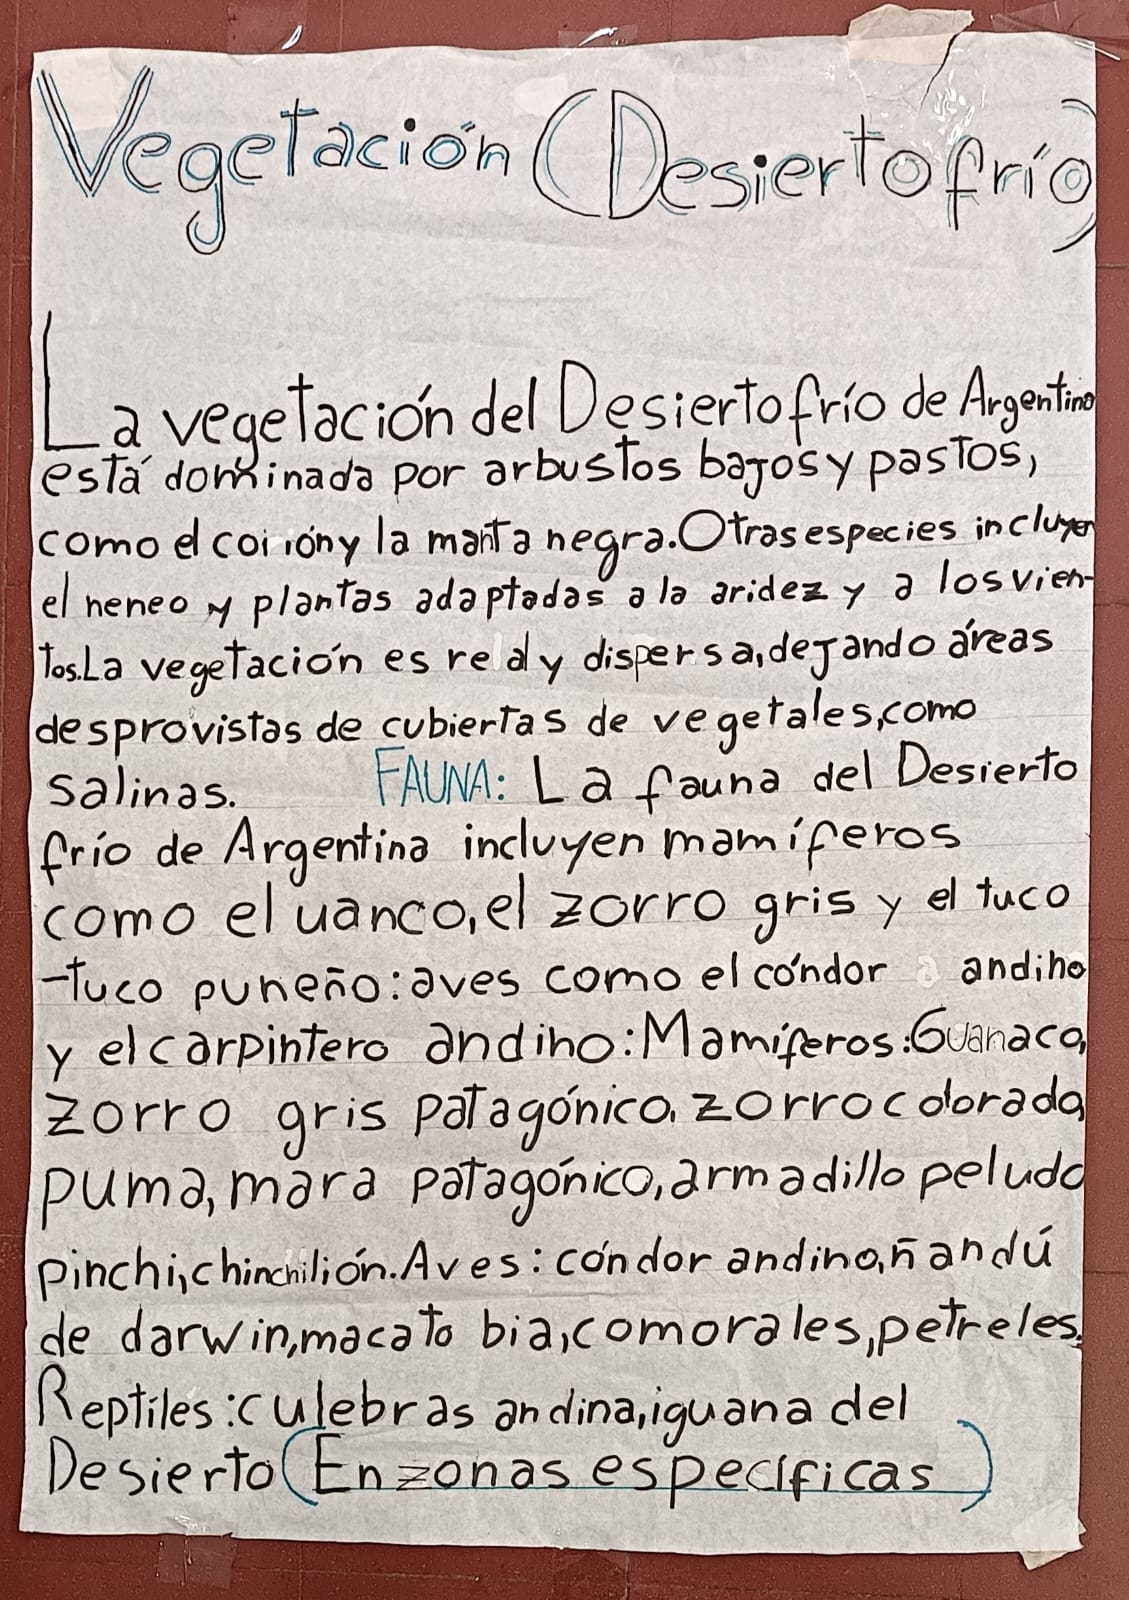 Vegetación (Desierto frío)
La vegetación del Desierto frío de Argentina
está dominada por arbustos bajos y pastos,
como el coirión y la manta negra. Otras especies incluyen
el neneo y plantas adaptadas a la aridez y a los vien-
tos. La vegetación es real y dispersa, dejando áreas
desprovistas de cubiertas de vegetales, como
salinas. FAUNA: La fauna del Desierto
frío de Argentina incluyen mamíferos
como el uanco, el zorro gris y el tuco
-tuco puneño: aves como el cóndor andino
y el carpintero andino: Mamíferos: Guanaco,
zorro gris patagónico, zorro colorado,
puma, mara patagónico, armadillo peludo
pinchi, chinchilión. Aves: cóndor andino, ñandú
de darwin, macato bia, comorales, petreles.
Reptiles: culebras andina, iguana del
Desierto (En zonas específicas)